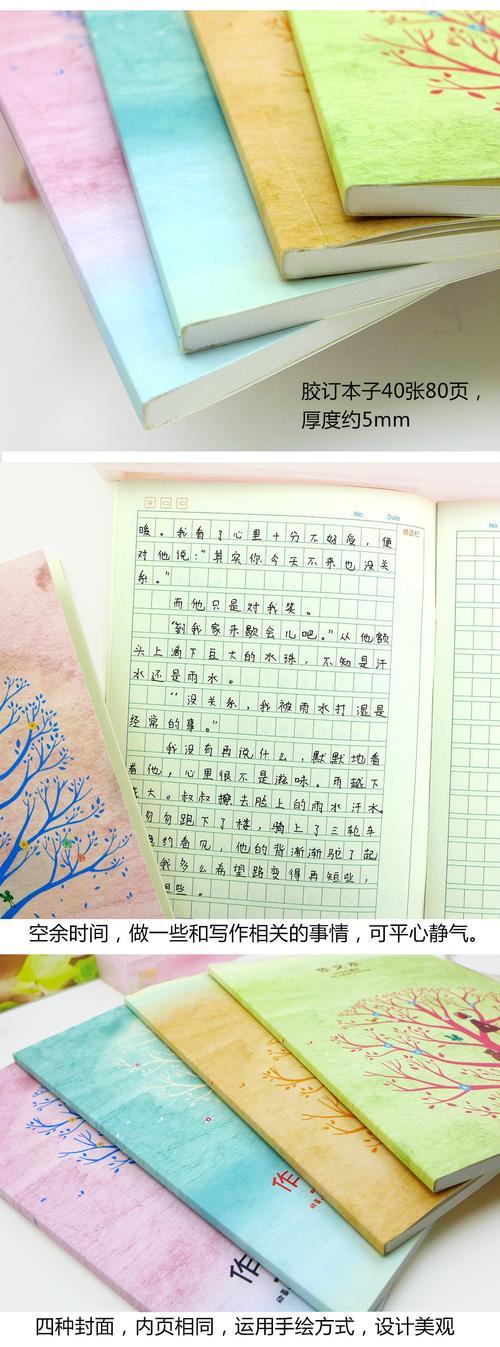 胶订本子40张80页，
厚度约5mm
No
Date
修正栏
暖。我看了心里十分不好受，便
对他说："其实你今天不来也没关
系。"
而他只是对我笑。
"到我家来歇会儿吧。"从他额
头上滴下豆大的水珠，不知是汗
水还是雨水。
"没关系，我被雨水打湿是
经常的事。"
我没有再说什么，默默地看
着他，心里很不是滋味。雨越下
大。叔叔擦去脸上的雨水汗水
匆匆跑下了楼，骑上了三轮车
约看见，他的背渐渐驼了起
我多么希望路变得再短些，
些。
空余时间，做一些和写作相关的事情，可平心静气。
作文本
作
作
四种封面，内页相同，运用手绘方式，设计美观